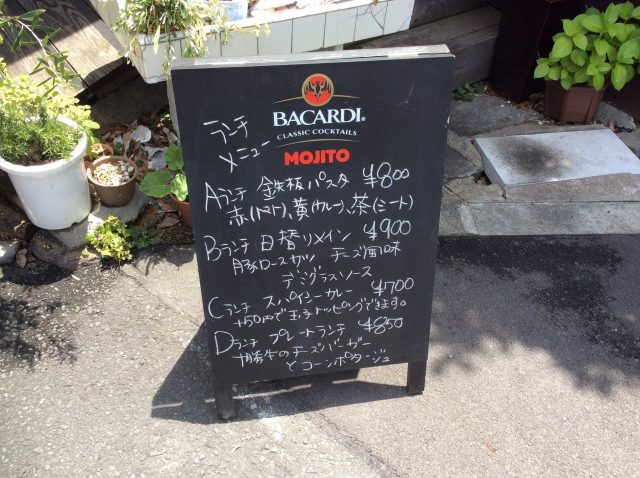 BACARDI®
CLASSIC COCKTAILS
MOJITO
ランチ
メニュー
Aランチ 鉄板パスタ ¥800
赤(トマト)、黄(カレー)、茶(ミート)
Bランチ 日替りメイン ¥900
豚ロースカツ チーズ風味
デミグラスソース
Cランチ スパイシーカレー ¥700
+50円で玉子トッピングできます。
Dランチ プレートランチ ¥850
十勝牛のチーズバーガー
とコーンポタージュ